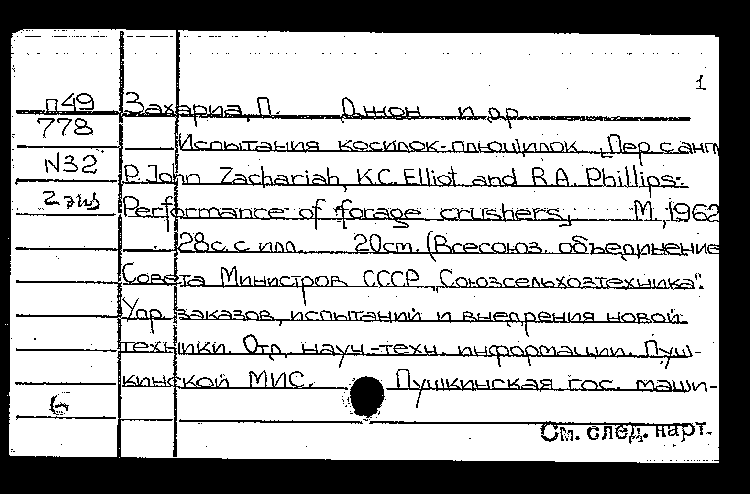 1
п49 Захариа, П. Джон и др
778 Испытания косилок-плющилок „Пер с англ
N32 P. John Zachariah, K.C. Elliot and R.A. Phillips:
2 экз Performance of forage crushers, М, 1962
28с. с илл. 20cm. (Всесоюз. объединение
Совета Министров СССР „Союзсельхозтехника".
Упр заказов, испытаний и внедрения новой
техники. Отд. науч.-техн. информации. Пуш-
кинской МИС. Пушкинская гос. маши-
6
См. след. карт.